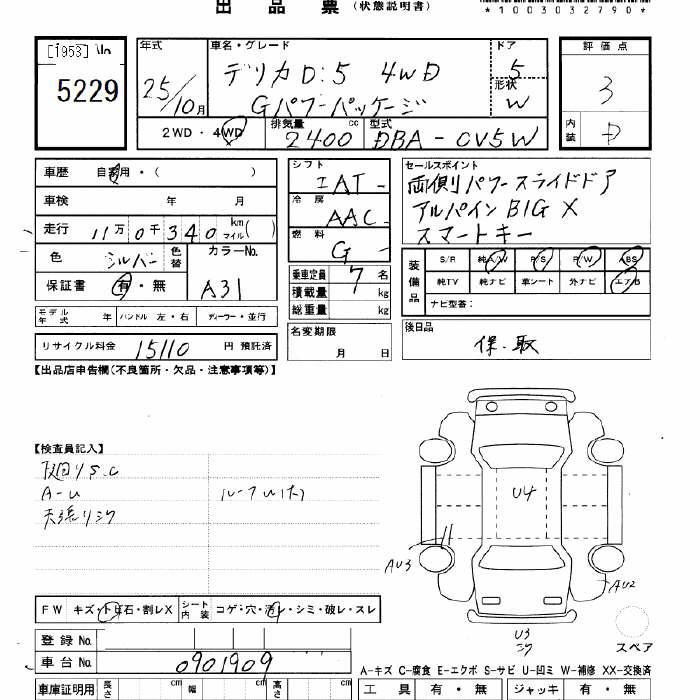 出品票 (状態説明書)
*1003032790*
[1953]
5229
年式 25/10月
車名・グレード デリカD:5 4WD
Gパワーパッケージ
ドア 5
形状 W
評価点 3
内装 D
2WD・4WD 排気量 2400 cc 型式 DBA-CV5W
車歴 自家用・( )
車検 年 月
走行 11万0千340 km マイル( )
色 シルバー 色替 カラーNo. A31
保証書 有・無
モデル年式 年 ハンドル 左・右 ディーラー・並行
リサイクル料金 15110 円 預託済
シフト IAT
冷房 AAC
燃料 G
乗車定員 7 名
積載量 kg
総重量 kg
名変期限 月 日
セールスポイント
両側パワースライドドア
アルパインBIG X
スマートキー
装備品 S/R 純A/W P/S P/W ABS
純TV 純ナビ 革シート 外ナビ エアB
ナビ型番:
後日品
保・取
【出品店申告欄(不良箇所・欠品・注意事項等)】
【検査員記入】
下廻りS.C
A-U
天張りシワ
U4
AU3
AU2
U3
スペア
FW キズ・トビ石・割レX シート内装 コゲ・穴・汚レ・シミ・破レ・スレ
登録No.
車台No. 0901909
A-キズ C-腐食 E-エクボ S-サビ U-凹ミ W-補修 XX-交換済
車庫証明用 長さ cm 幅 cm 高さ cm
工具 有・無 ジャッキ 有・無